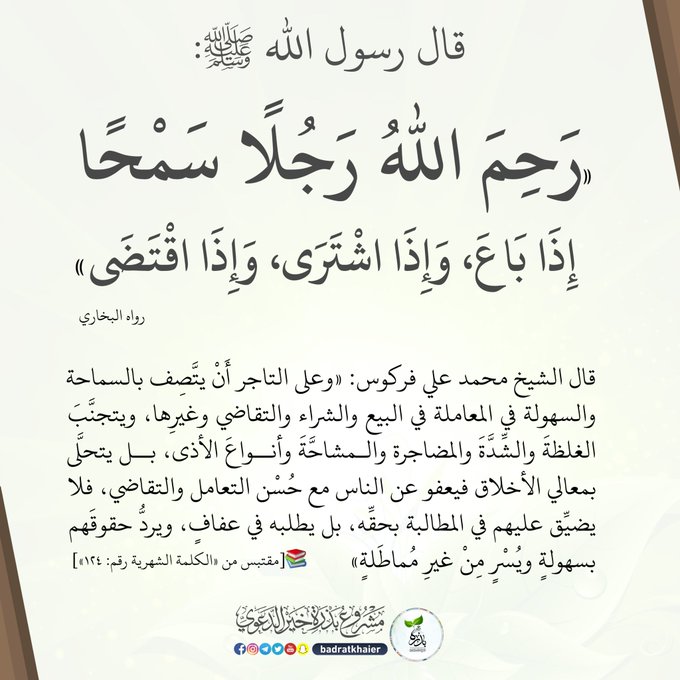 قال رسول الله ﷺ:
«رَحِمَ اللهُ رَجُلًا سَمْحًا
إِذَا بَاعَ، وَإِذَا اشْتَرَى، وَإِذَا اقْتَضَى»
رواه البخاري
قال الشيخ محمد علي فركوس: «وعلى التاجر أَنْ يتَّصِف بالسماحة
والسهولة في المعاملة في البيع والشراء والتقاضي وغيرِها، ويتجنَّبَ
الغلظةَ والشِّدَّةَ والمضاجرة والـمشاحَّةَ وأنـواعَ الأذى، بـل يتحلَّى
بمعالي الأخلاق فيعفو عن الناس مع حُسْن التعامل والتقاضي، فلا
يضيِّق عليهم في المطالبة بحقِّه، بل يطلبه في عفافٍ، ويردُّ حقوقَهم
بسهولةٍ ويُسْرٍ مِنْ غيرِ مُماطَلةٍ» [مقتبس من «الكلمة الشهرية رقم: ١٢٤»]
مشروع بذرة خير الدعوي
بذرة
badratkhaier